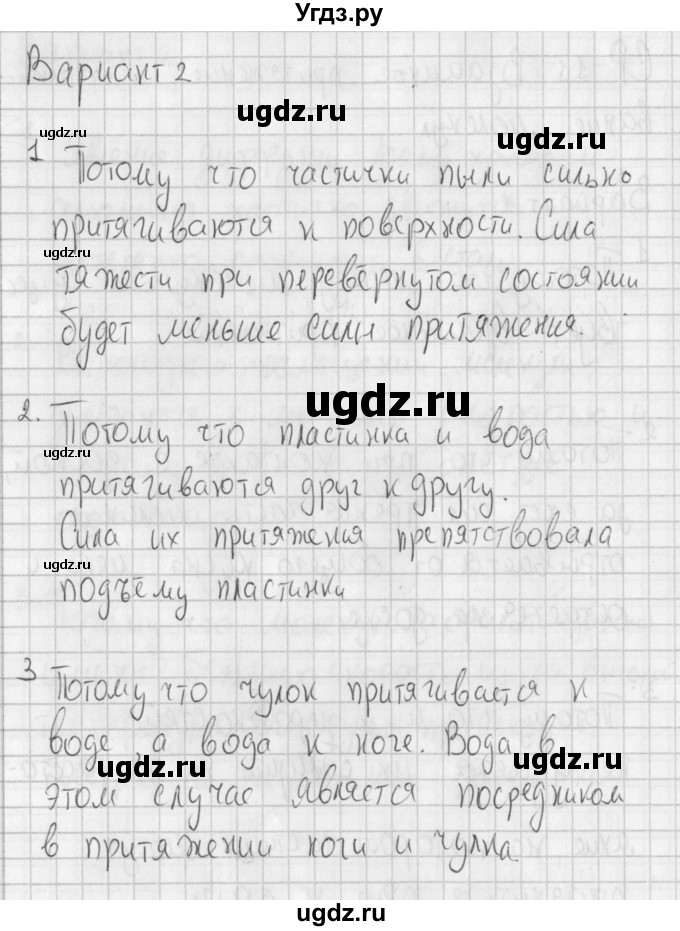 Угдз.ру
Вариант 2
ugdz.ru
ugdz.ru
ugdz.ru
1 Потому что частички пыли сильно
притягиваются к поверхности. Сила
ugdz.ru
тяжести при перевёрнутом состоянии
будет меньше силы притяжения.
ugdz.ru
2. Потому что пластинка и вода
ugdz.ru
притягиваются друг к другу.
Сила их притяжения препятствовала
ugdz.ru
подъёму пластинки
3 Потому что чулок притягивается к
ugdz.ru
воде, а вода к ноге. Вода в
ugdz.ru
ugdz.ru
этом случае является посредником
в притяжении ноги и чулка
ugdz.ru